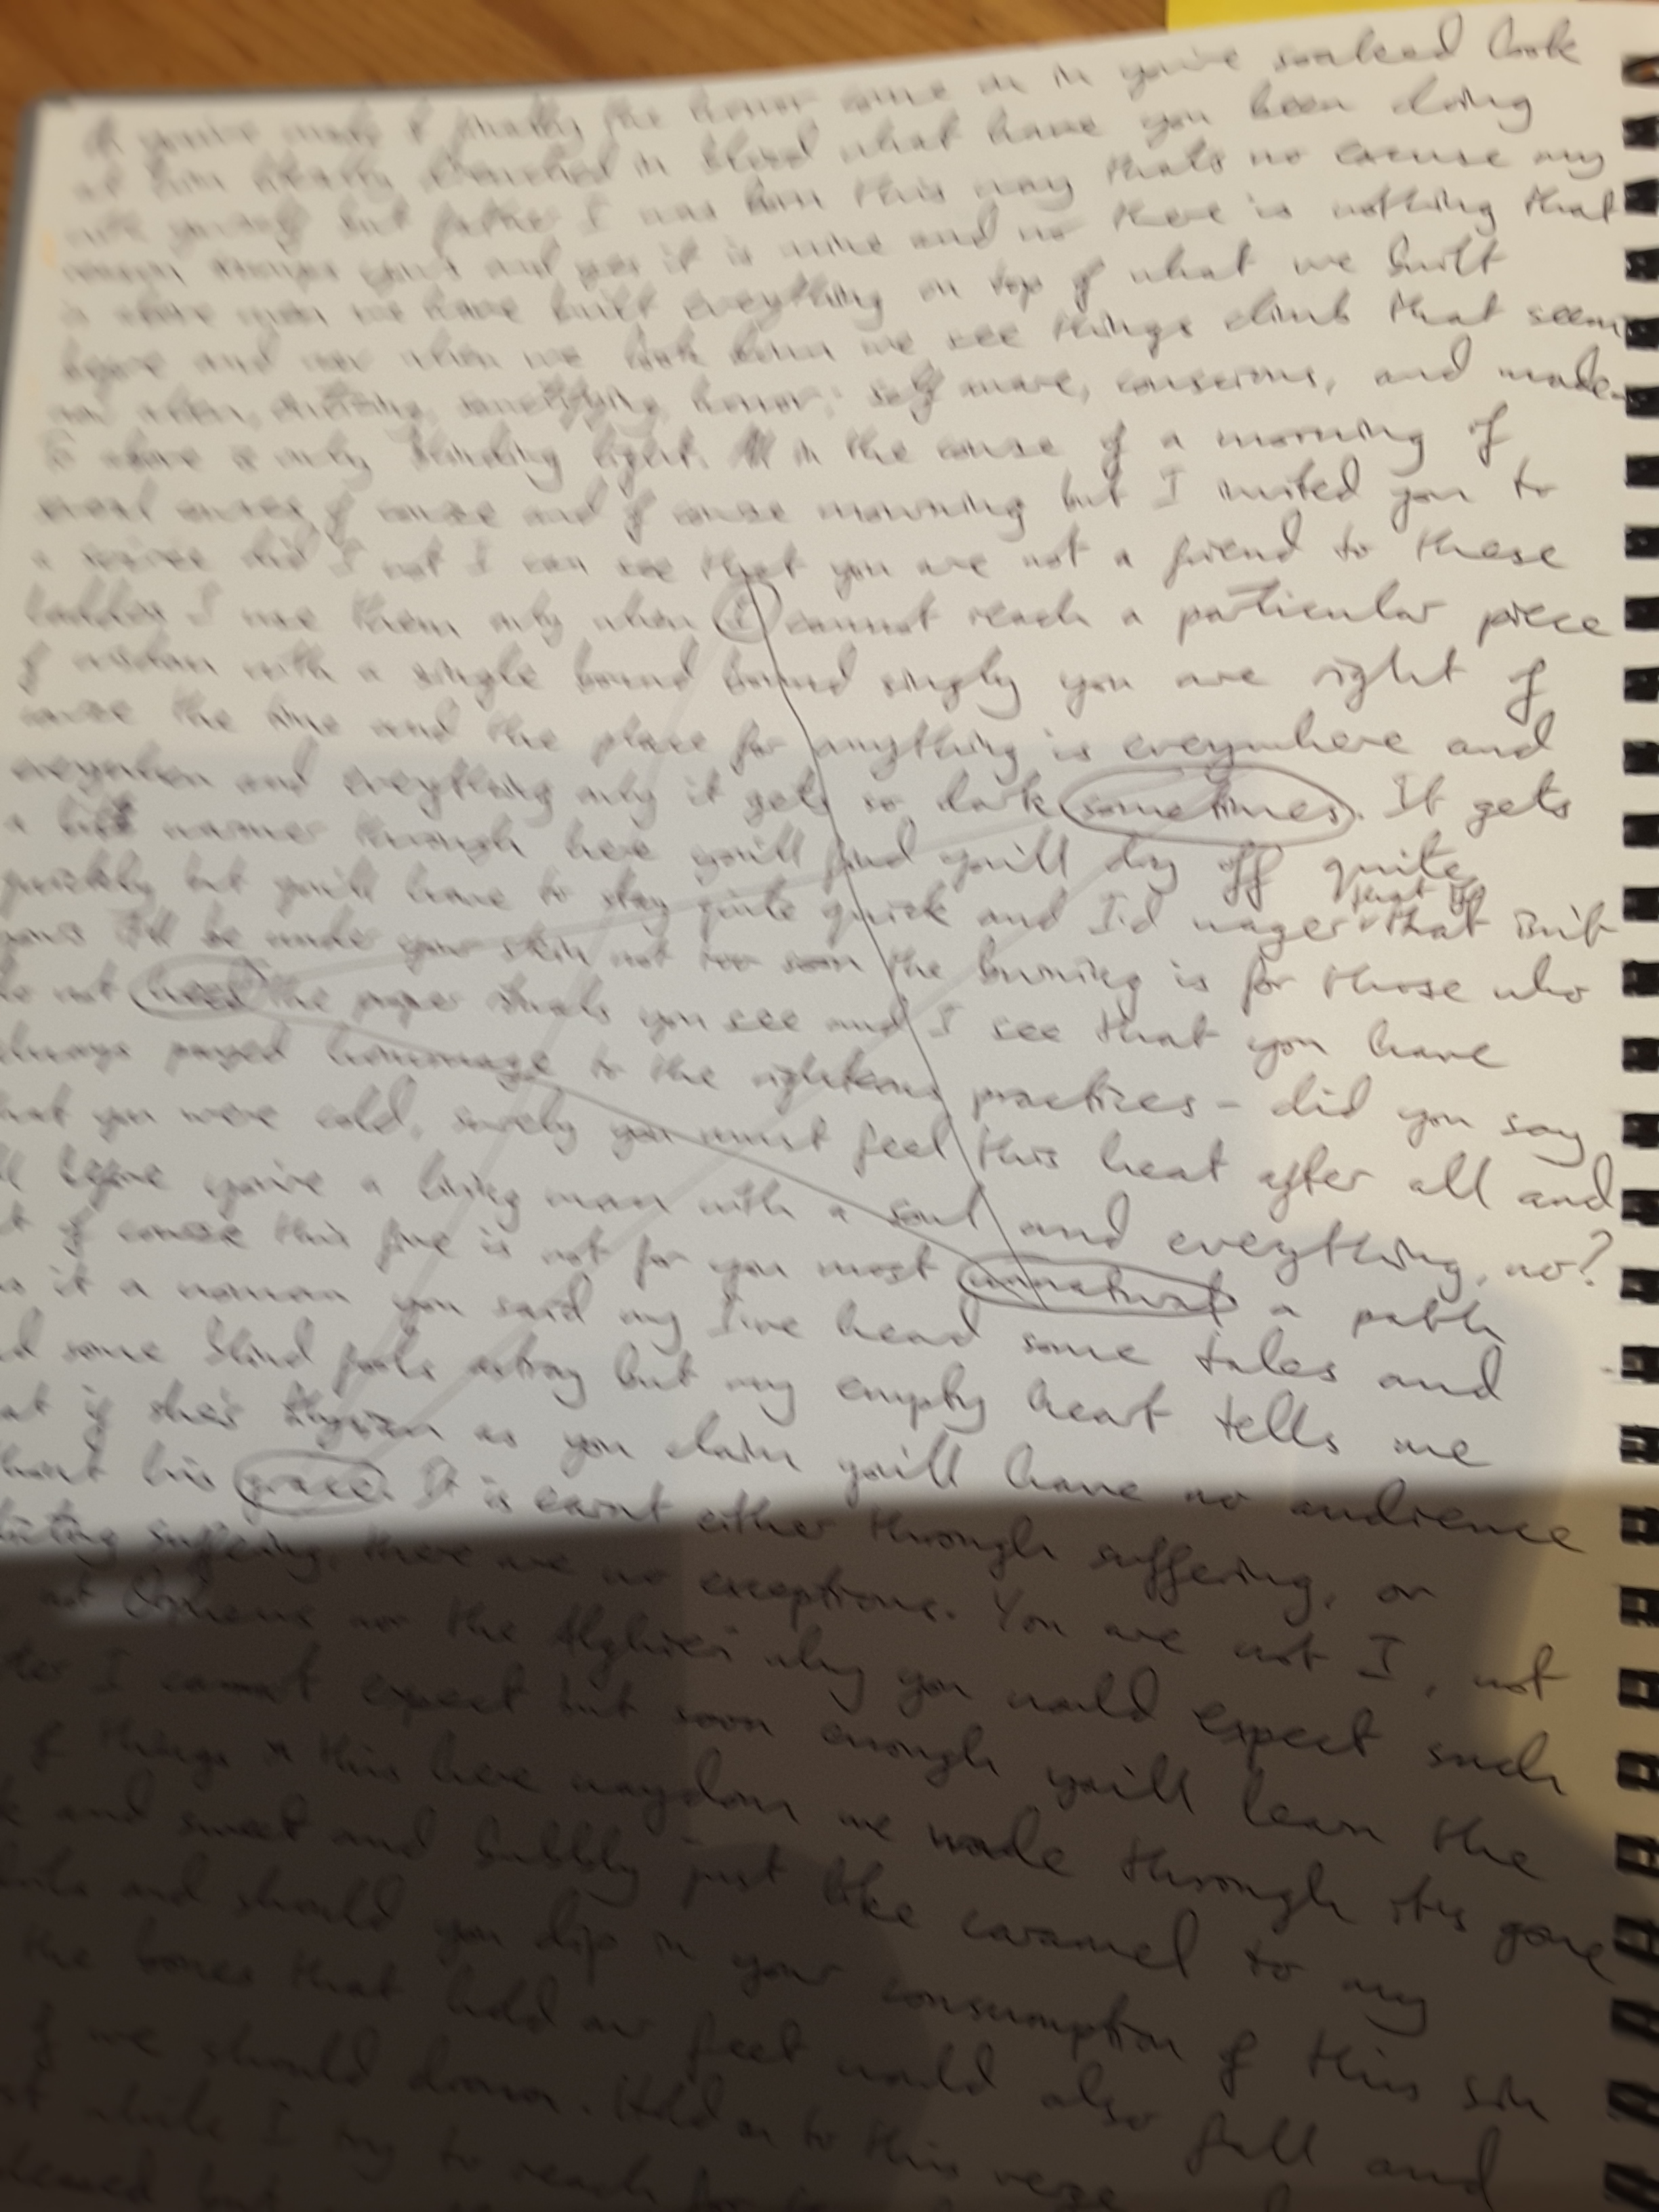 you've made it finally the honor come on in you're soaked look
at him literally drenched in blood what have you been doing
with yourself but father I was born this way thats no excuse my
and yes it is mine and no there is nothing that
is above man we have built everything on top of what we built
before and now when we look down we see things climb that seem
honor; self aware, conscious, and made-
To above is only blinding light. in the course of a morning of
of course and of course mourning but I invited you to
a soiree did I not I can see that you are not a friend to these
ladders I use them only when I cannot reach a particular piece
of wisdom with a single bound bound singly you are right of
course the time and the place for anything is everywhere and
everywhen and everything only it gets so dark sometimes. It gets
a bit warmer through here you'll find you'll dry off quite
quickly but you'll have to stay quite quick and I'd wager that if that isn't
yours I'll be under your skin not too soon the burning is for those who
do not heed the proper rituals you see and I see that you have
always payed hommage to the righteous practices - did you say
that you were cold, surely you must feel this heat after all and
before you're a living man with a soul and everything, no?
of course this fire is not for you most unnatural a path
is it a woman you said my I've heard some tales and
some blind fools astray but my empty heart tells me
at if she's Stygian as you claim you'll have no audience
his grace. It is earnt either through suffering, or
suffering, there are no exceptions. You are not I, not
not Orpheus nor the Alghieri why you would expect such
I cannot expect but soon enough you'll learn the
of things in this here waydown we wade through it's gore
and sweet and bubbly just like caramel to my
and should you dip in your consumption of this sin
the bones that hold our feet would also fall and
if we should drown. Hold on to this verse
while I try to reach for